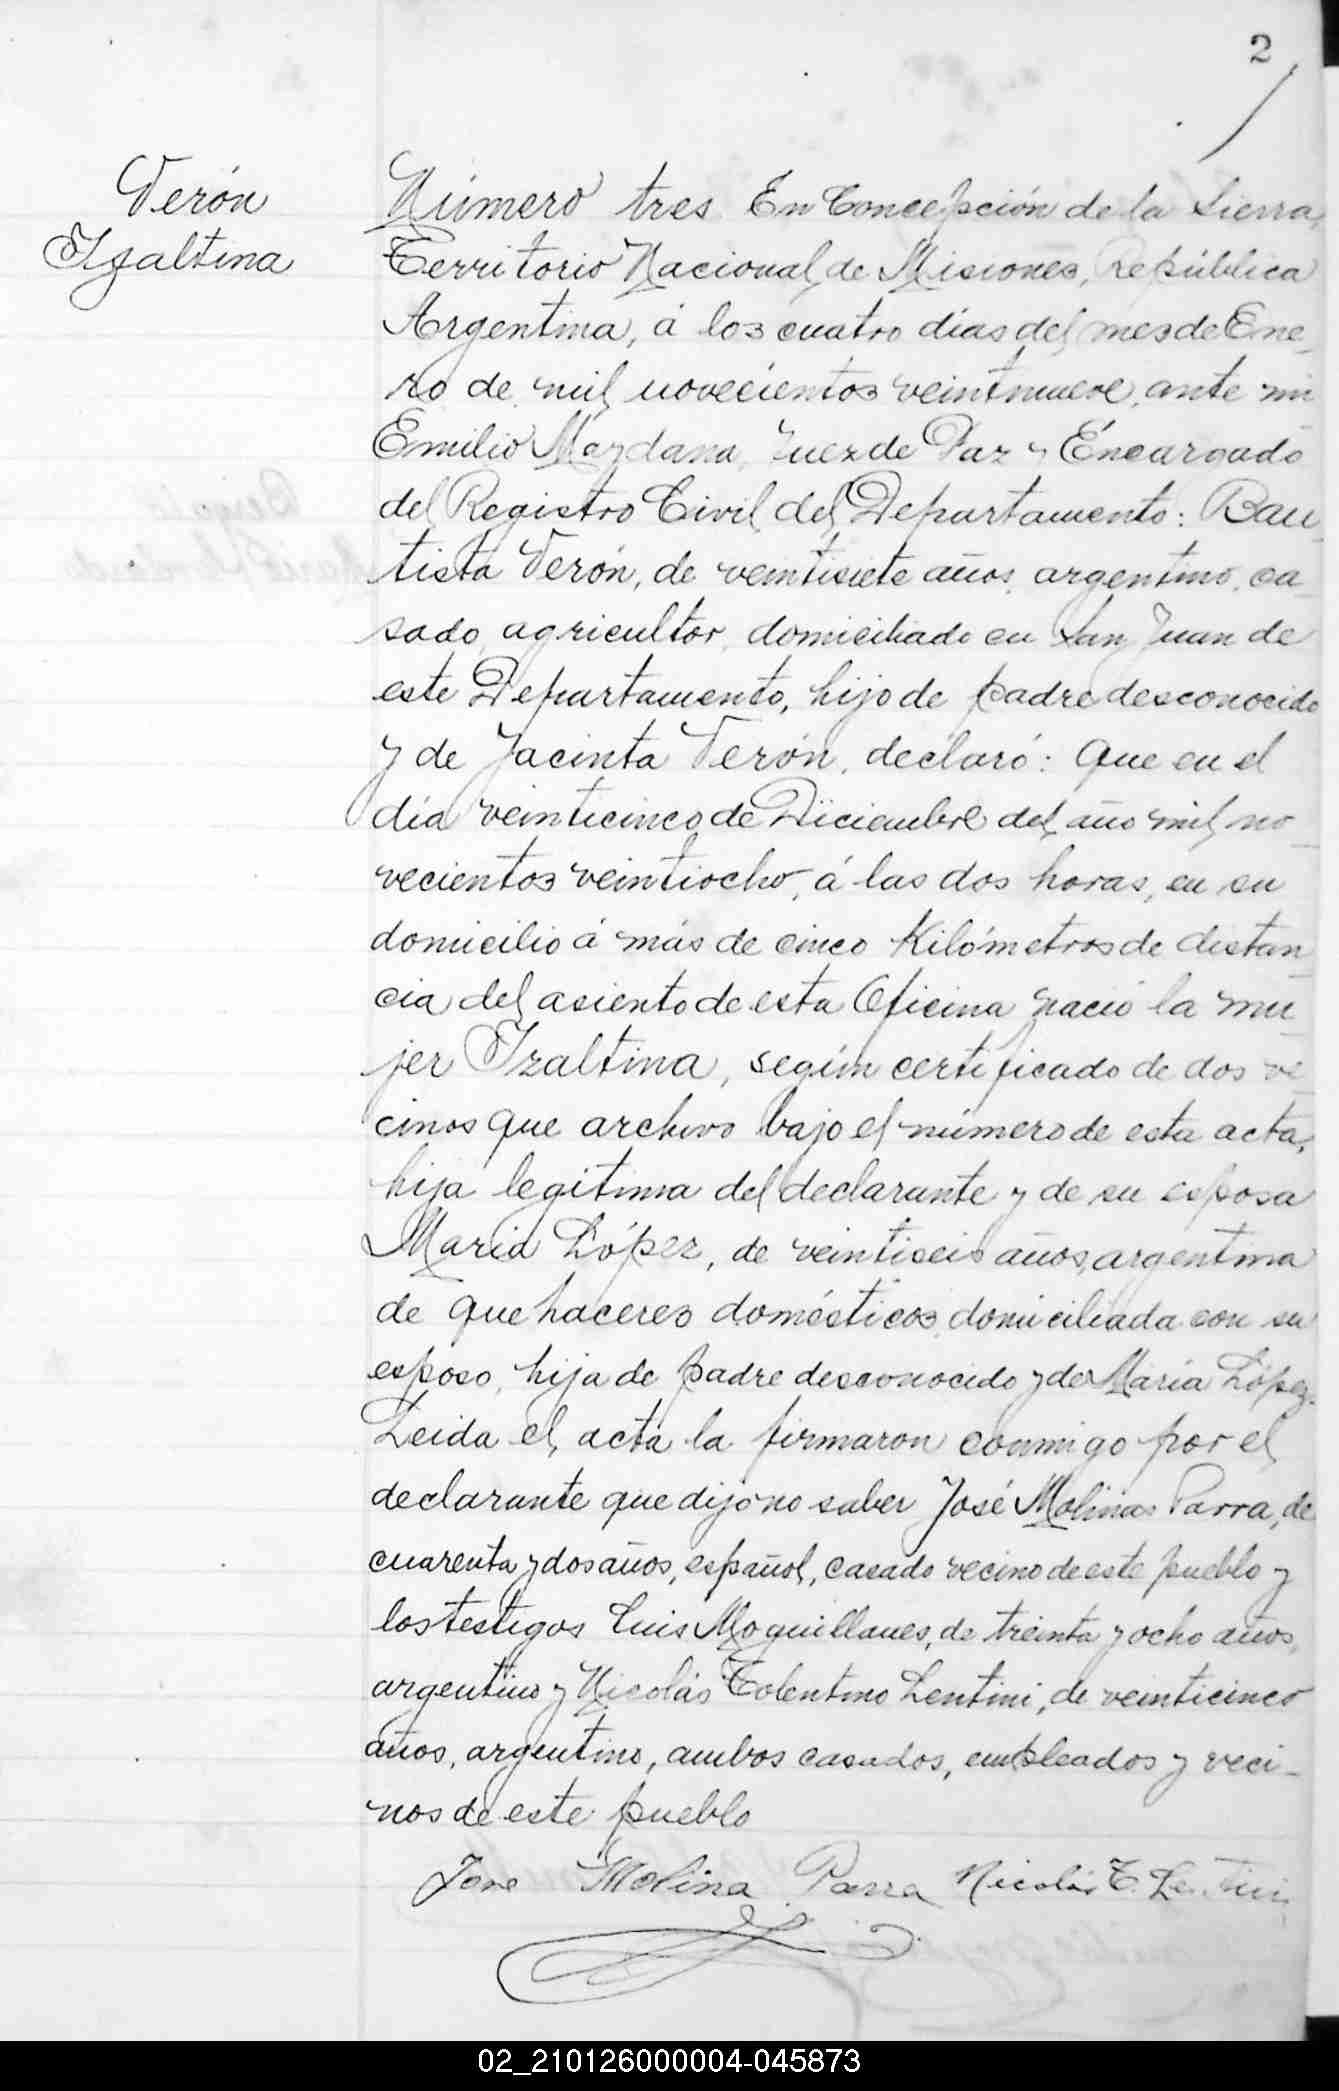 2
Verón
Izaltina
Número tres En Concepción de la Sierra,
Territorio Nacional de Misiones, República
Argentina, á los cuatro días del mes de Ene-
ro de mil novecientos veintinueve, ante mi
Emilio Maydana, Juez de Paz y Encargado
del Registro Civil del Departamento: Bau-
tista Verón, de veintisiete años, argentino, ca-
sado, agricultor, domiciliado en San Juan de
este Departamento, hijo de padre desconocido
y de Jacinta Verón, declaró: Que en el
día veinticinco de Diciembre del año mil no-
vecientos veintiocho, á las dos horas, en su
domicilio á más de cinco Kilómetros de distan-
cia del asiento de esta Oficina nació la mu-
jer Izaltina, según certificado de dos ve-
cinos que archivo bajo el número de esta acta,
hija legítima del declarante y de su esposa
María López, de veintiseis años, argentina
de que haceres domésticos, domiciliada con su
esposo, hija de padre desconocido y de María López.
Leida el acta la firmaron conmigo por el
declarante que dijo no saber José Molinas Parra, de
cuarenta y dos años, español, casado vecino de este pueblo y
los testigos Luis Moquillanes, de treinta y ocho años,
argentino y Nicolás Tolentino Lentini, de veinticinco
años, argentino, ambos casados, empleados y veci-
nos de este pueblo
Jose Molina Parra Nicolás T. Lentini
02_210126000004-045873